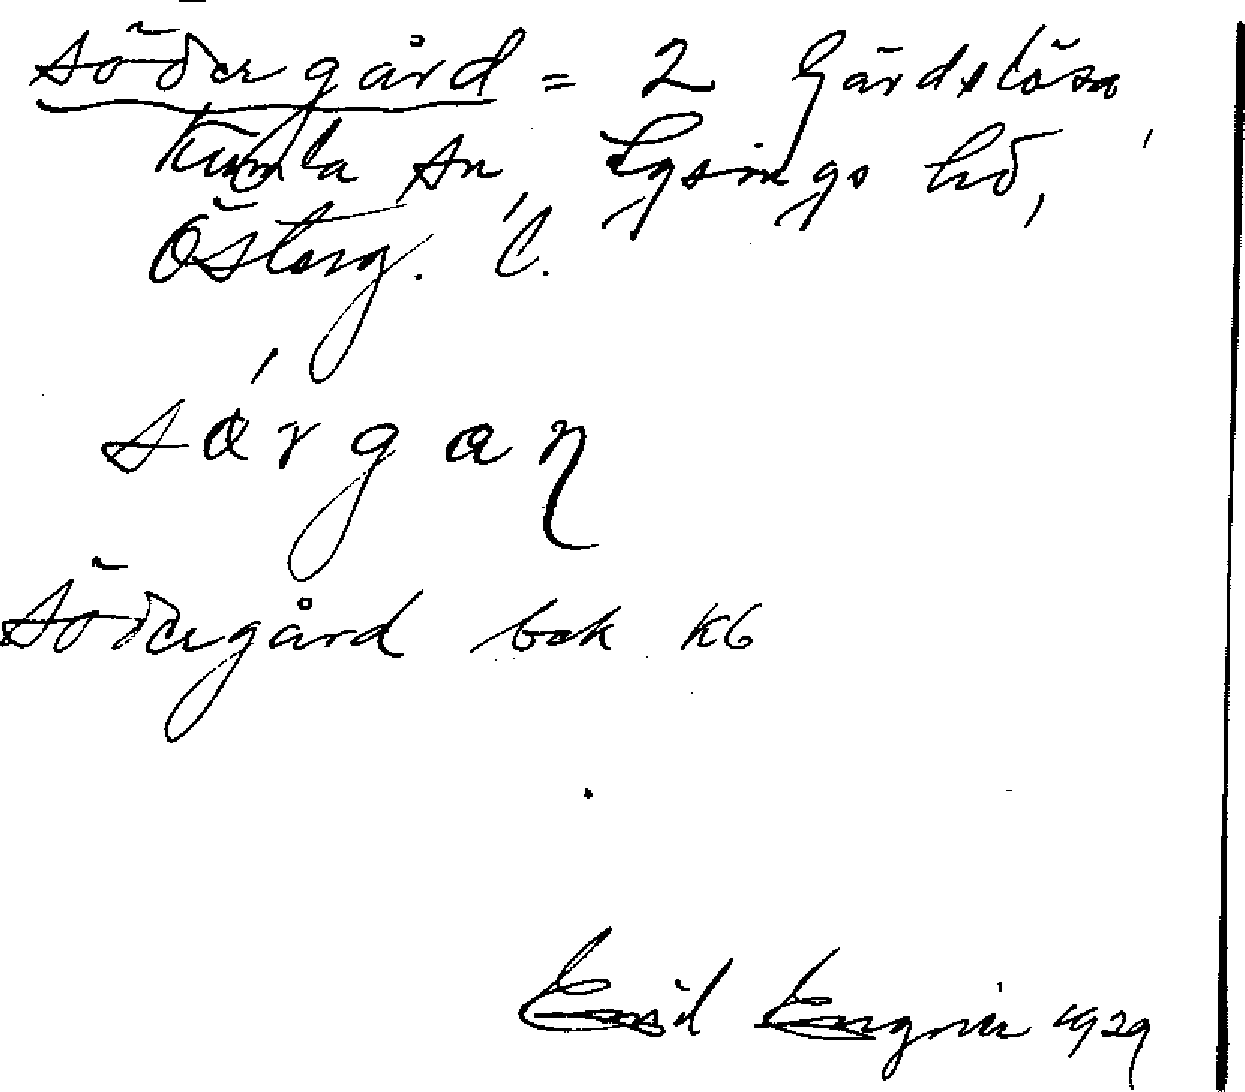 Södergård = 2 Gärdslösa,
Kumla sn, Lysings hd,
Österg. l.
sǿrgaɳ
Södergård bok KG
Enid Engvin 1929